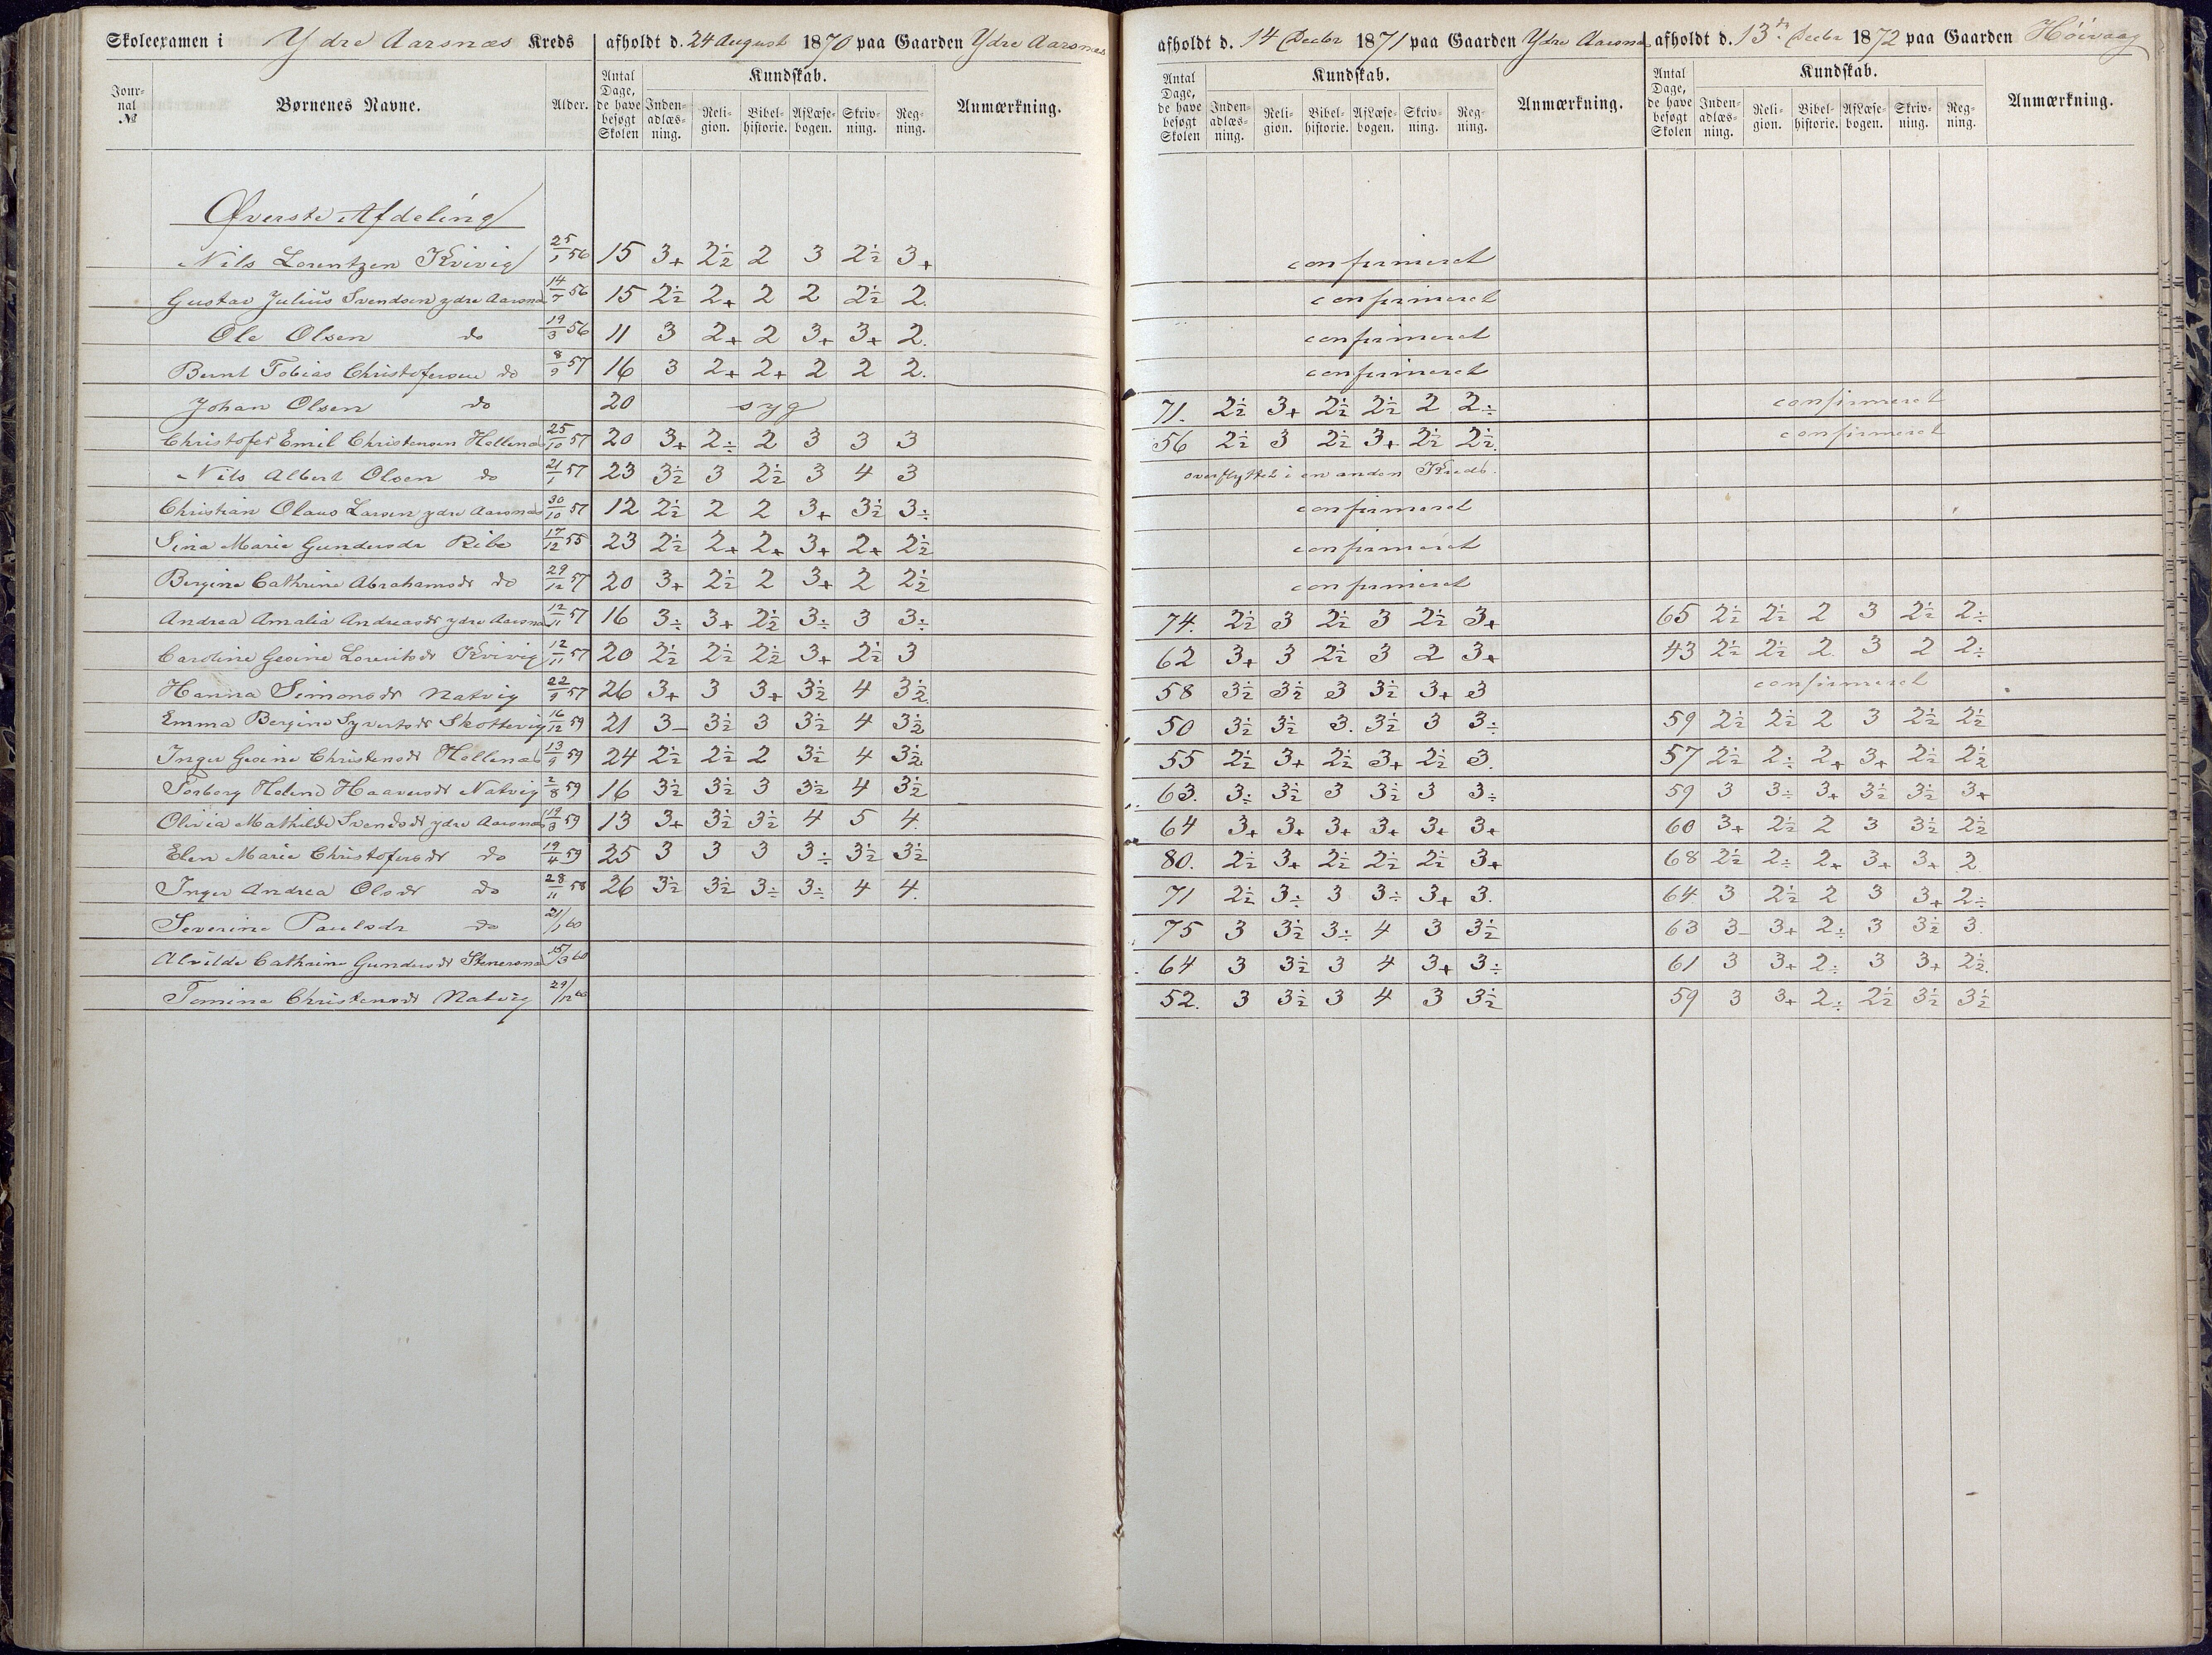 Skoleexamen i Ydre Aarsnæs Kreds afholdt d. 24 August 1870 paa Gaarden Ydre Aarsnæs afholdt d. 14 Decbr 1871 paa Gaarden Ydre Aarsnæs afholdt d. 13de Decbr 1872 paa Gaarden Höivaag
Jour-nal № Børnenes Navne. Alder. Antal Dage, de have besøgt Skolen Kundskab. Inden-adlæs-ning. Reli-gion. Bibel-historie. Af Læse-bogen. Skriv-ning. Reg-ning. Anmærkning. Antal Dage, de have besøgt Skolen Kundskab. Inden-adlæs-ning. Reli-gion. Bibel-historie. Af Læse-bogen. Skriv-ning. Reg-ning. Anmærkning. Antal Dage, de have besøgt Skolen Kundskab. Inden-adlæs-ning. Reli-gion. Bibel-historie. Af Læse-bogen. Skriv-ning. Reg-ning. Anmærkning.
Øverste Afdeling
Nils Lorentzen Kvivig 25/1 56 15 3+ 2½ 2 3 2½ 3+ confirmeret
Gustav Julius Svendsen ydre Aarsnæs 14/7 56 15 2½ 2+ 2 2 2½ 2. confirmeret
Ole Olsen do 19/3 56 11 3 2+ 2 3+ 3+ 2. confirmeret
Bernt Tobias Christofersen do 8/9 57 16 3 2+ 2+ 2 2 2. confirmeret
Johan Olsen do 20 syg 71. 2½ 3+ 2½ 2½ 2 2÷ confirmeret
Christofer Emil Christensen Hellenæs 25/10 57 20 3+ 2÷ 2 3 3 3 56 2½ 3 2½ 3+ 2½ 2½. confirmeret
Nils Albert Olsen do 21/1 57 23 3½ 3 2½ 3 4 3 overflyttet i en anden Kreds.
Christian Olaus Larsen ydre Aarsnæs 30/10 57 12 2½ 2 2 3+ 3½ 3÷ confirmeret
Sina Marie Gundersdr Ribe 17/12 55 23 2½ 2+ 2+ 3+ 2+ 2½ confirmeret
Bergine Cathrine Abrahamsdr do 29/12 57 20 3+ 2½ 2 3+ 2 2½ confirmeret
Andrea Amalia Andreasdr ydre Aarsnæs 12/11 57 16 3÷ 3+ 2½ 3÷ 3 3÷ 74. 2½ 3 2½ 3 2½ 3+ 65 2½ 2½ 2 3 2½ 2÷
Caroline Geoine Lorentsdr Kvivig 12/11 57 20 2½ 2½ 2½ 3+ 2½ 3 62 3+ 3 2½ 3 2 3+ 43 2½ 2½ 2 3 2 2÷
Hanna Simonsdr Natvig 22/9 57 26 3+ 3 3+ 3½ 4 3½ 58 3½ 3½ 3 3½ 3+ 3 confirmeret
Emma Bergine Syvertsdr Skottevig 16/12 59 21 3- 3½ 3 3½ 4 3½ 50 3½ 3½ 3. 3½ 3 3÷ 59 2½ 2½ 2 3 2½ 2½
Inger Geoine Christensdr Hellenæs 13/9 59 24 2½ 2½ 2 3½ 4 3½ 55 2½ 3+ 2½ 3+ 2½ 3. 57 2½ 2÷ 2+ 3+ 2½ 2½
Torborg Helene Haaversdr Natvig 2/8 59 16 3½ 3½ 3 3½ 4 3½ 63. 3÷ 3½ 3 3½ 3 3÷ 59 3 3÷ 3+ 3½ 3½ 3+
Olivia Mathilde Svendsdr ydre Aarsnæs 19/3 59 13 3+ 3½ 3½ 4 5 4. 64 3+ 3+ 3+ 3+ 3+ 3+ 60 3+ 2½ 2 3 3½ 2½
Elen Marie Christofersdr do 19/4 59 25 3 3 3 3÷ 3½ 3½ 80. 2½ 3+ 2½ 2½ 2½ 3+ 68 2½ 2÷ 2+ 3+ 3+ 2
Inger Andrea Olsdr do 28/11 58 26 3½ 3½ 3÷ 3÷ 4 4. 71 2½ 3÷ 3 3÷ 3+ 3. 64 3 2½ 2 3 3+ 2÷
Severine Paulsdr do 21/1 60 75 3 3½ 3÷ 4 3 3½ 63 3- 3+ 2÷ 3 3½ 3.
Alvilde Cathrine Gundersdr Stenersnæs 15/3 60 64 3 3½ 3 4 3+ 3÷ 61 3 3+ 2÷ 3 3+ 2½.
Temine Christensdr Natvig 29/12 60 52. 3 3½ 3 4 3 3½ 59 3 3+ 2÷ 2½ 3½ 3½